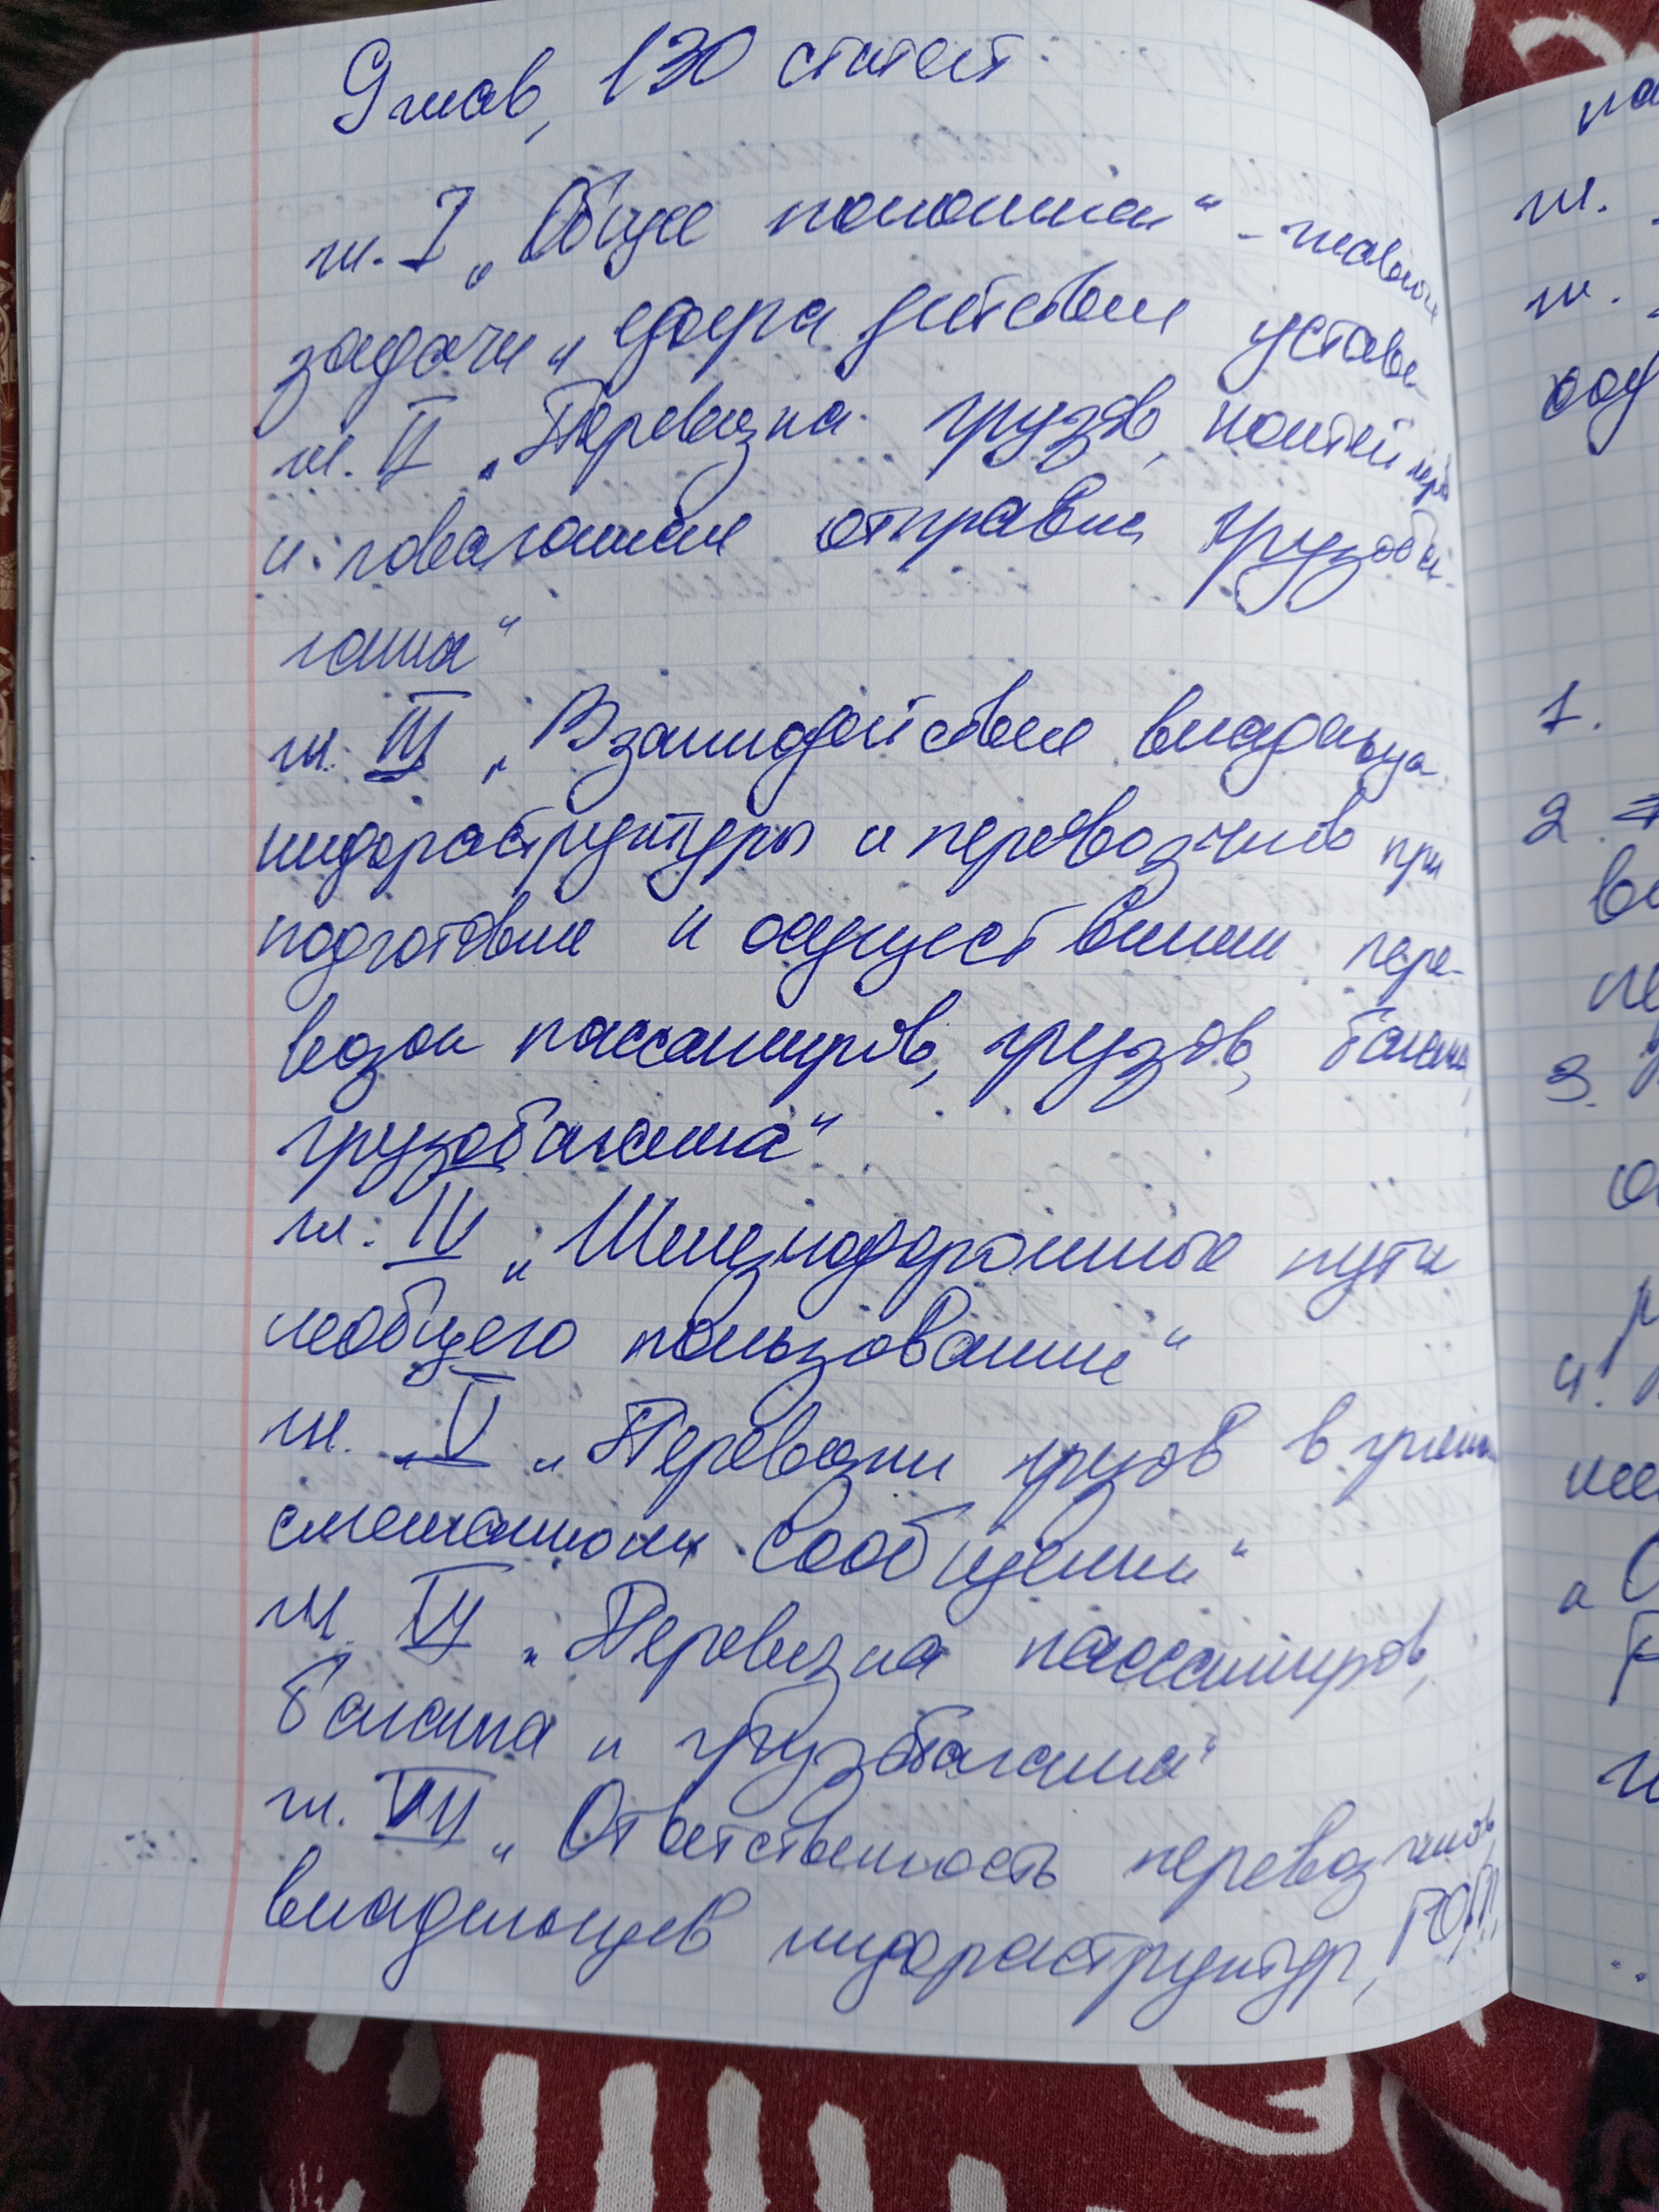 9 глав, 130 статей.
гл. I „Общие положения“ - главные
задачи и сфера действия устава
гл. II „Перевозка грузов, контейнеров
и повагонная отправка грузоба-
гажа“
гл. III „Взаимодействие владельца
инфраструктуры и перевозчиков при
подготовке и осуществлении пере-
возок пассажиров, грузов, багажа,
грузобагажа“
гл. IV „Железнодорожные пути
необщего пользования“
гл. V „Перевозки грузов в прямом
смешанном сообщении“
гл. VI „Перевозка пассажиров,
багажа и грузобагажа“
гл. VII „Ответственность перевозчиков,
владельцев инфраструктур,
1.
2.
3.
4.